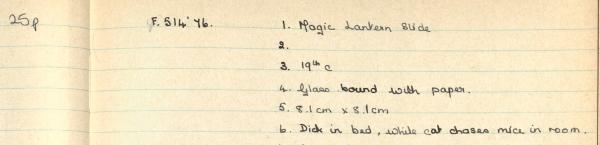 25p F. 514'76. 1. Magic Lantern Slide
2.
3. 19th c
4. Glass bound with paper.
5. 8.1cm x 8.1cm
6. Dick in bed, while cat chases mice in room.